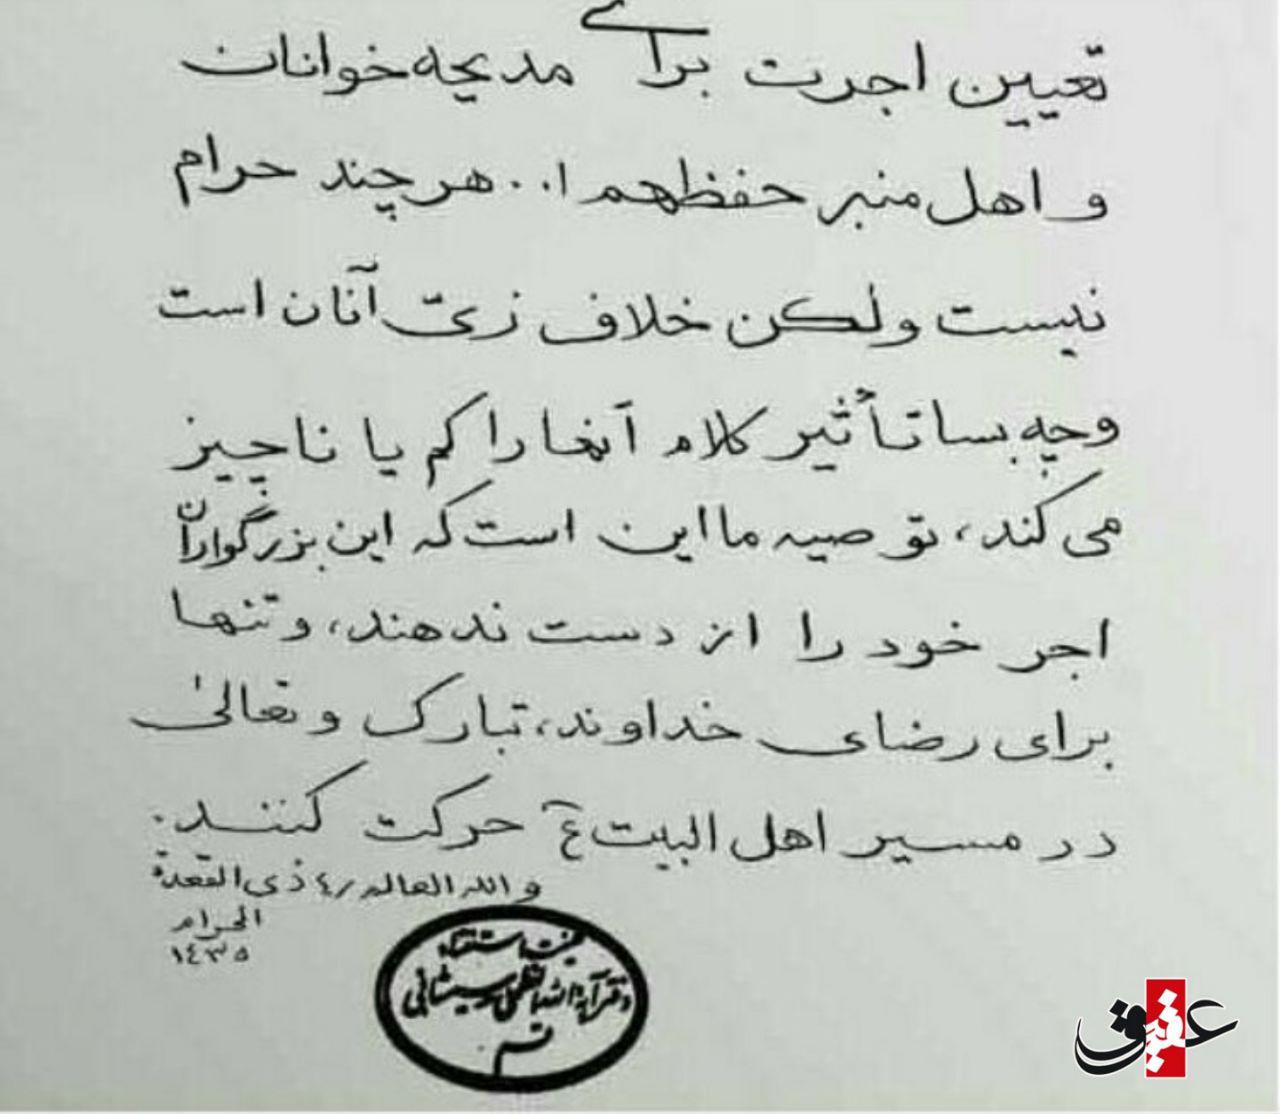 تعیین اجرت برای مدیحه‌خوانان
و اهل منبر حفظهم ا... هر چند حرام
نیست ولکن خلاف زیّ آنان است
و چه بسا تأثیر کلام آنها را کم یا ناچیز
می‌کند، توصیه ما این است که این بزرگواران
اجر خود را از دست ندهند، و تنها
برای رضای خداوند، تبارک و تعالیٰ
در مسیر اهل البیت ع حرکت کنند.
والله العالم ٤/ ذی القعدة
الحرام
١٤٣٥
استفتاء
دفتر آیة الله العظمی سیستانی
قم
عقیق